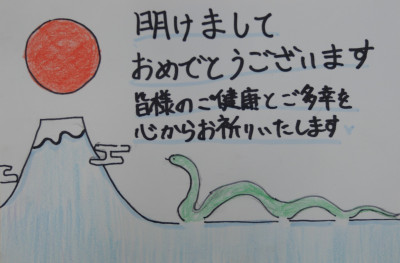 明けまして
おめでとうございます
皆様のご健康とご多幸を
心からお祈りいたします